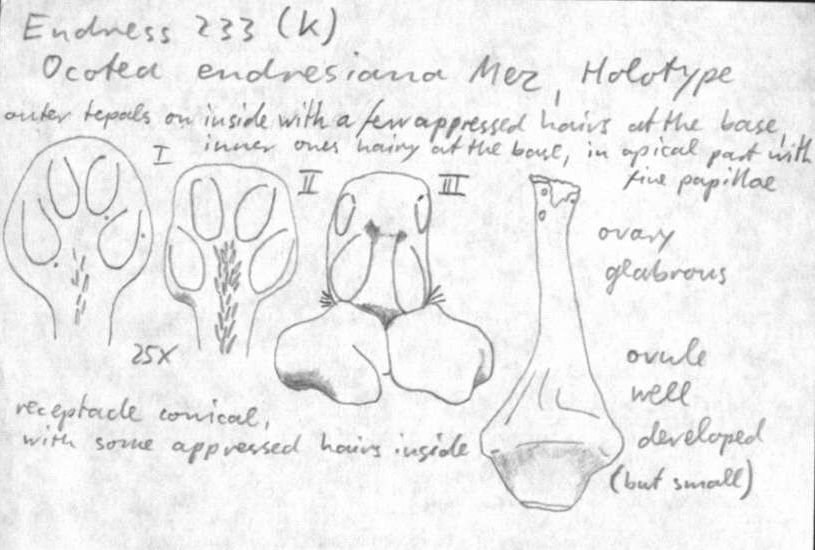 Endress 233 (K)
Ocotea endresiana Mez, Holotype
outer tepals on inside with a few appressed hairs at the base,
inner ones hairy at the base, in apical part with
fine papillae
I
II
III
ovary
glabrous
25x
ovule
well
developed
(but small)
receptacle conical,
with some appressed hairs inside